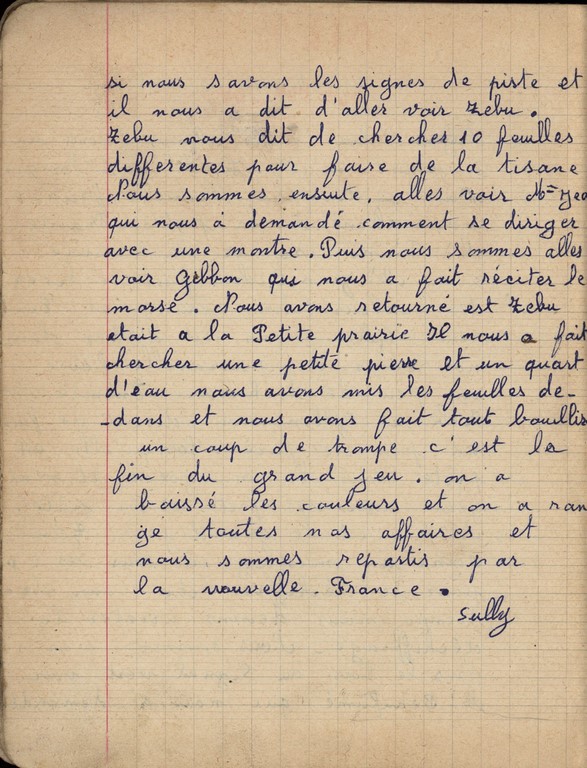 si nous savons les signes de piste et
il nous a dit d'aller voir Zebu.
Zebu nous dit de chercher 10 feuilles
differentes pour faise de la tisane
Nous sommes ensuite, alles voir
qui nous à demandé comment se diriger
avec une montre. Puis nous sommes alles
voir Gibbon qui nous a fait réciter le
morse. Nous avons retourné est Zebu
etait a la Petite prairie Il nous a fait
chercher une petite pierre et un quart
d'eau nous avons mis les feuilles de-
-dans et nous avons fait tout bouillir
un coup de trompe c'est la
fin du grand jeu. on a
baissé les couleurs et on a ran
gé toutes nos affaires et
nous sommes repartis par
la nouvelle. France.
Sully